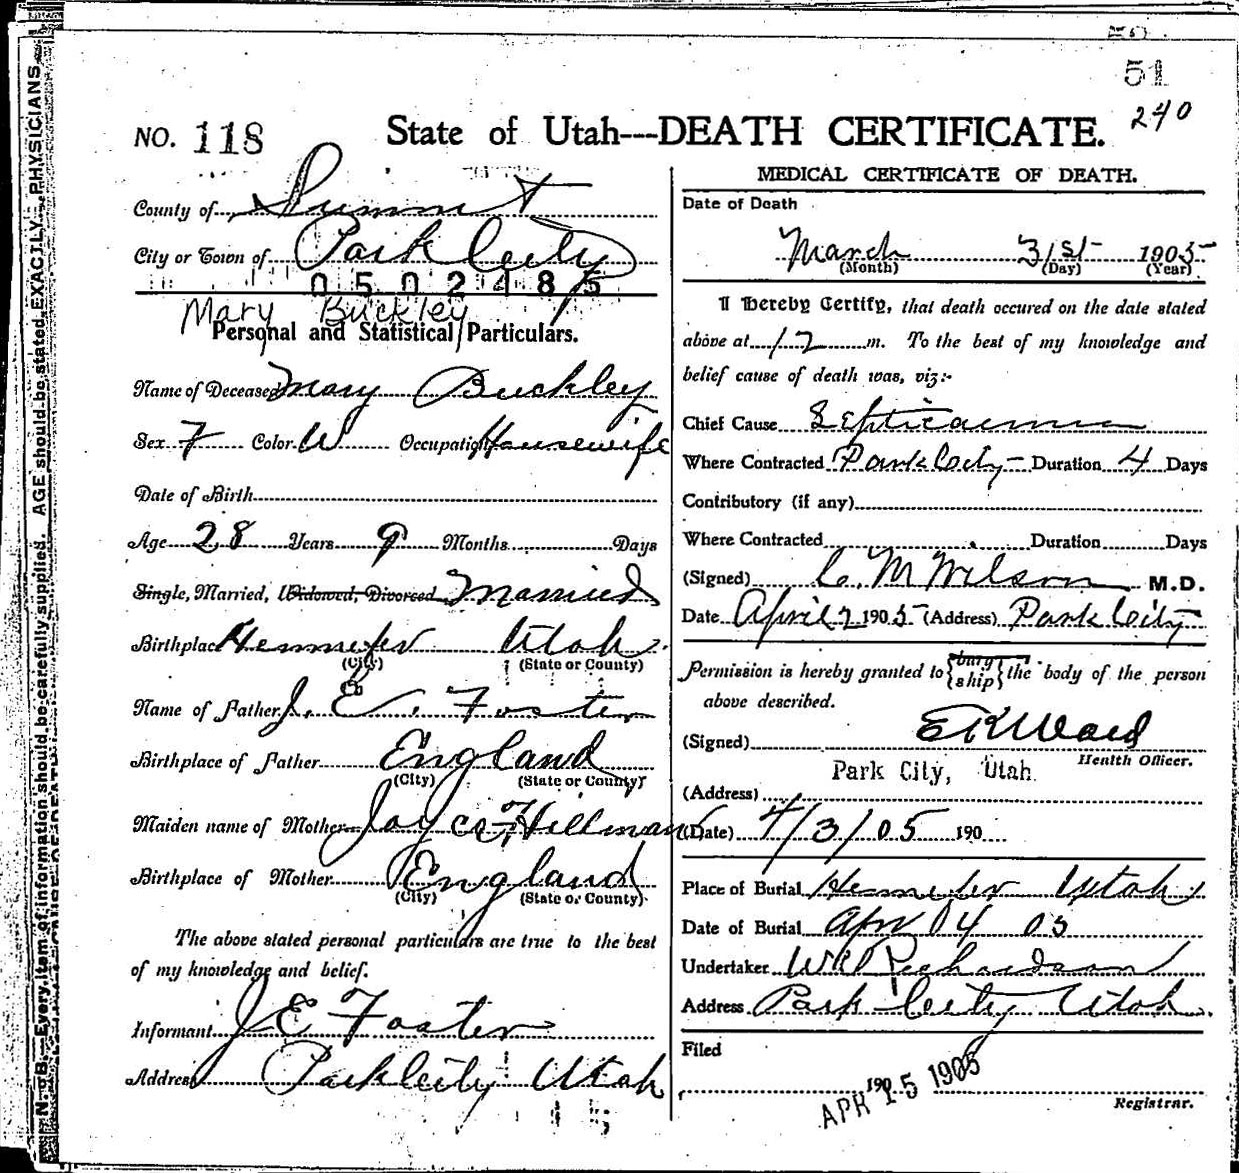 51
240
NO. 118
State of Utah---DEATH CERTIFICATE.
County of Summit
City or Town of Park City
0502485
Mary Buckley
Personal and Statistical Particulars.
Name of Deceased Mary Buckley
Sex F Color W Occupation Housewife
Date of Birth
Age 28 Years 9 Months Days
Single, Married, Widowed, Divorced Married
Birthplace Hennefer Utah
(City) (State or County)
Name of Father J. E. Foster
Birthplace of Father England
(City) (State or County)
Maiden name of Mother Hillman
Birthplace of Mother England
(City) (State or County)
The above stated personal particulars are true to the best
of my knowledge and belief.
Informant J E Foster
Address Park City Utah
MEDICAL CERTIFICATE OF DEATH.
Date of Death
March 31st 1905
(Month) (Day) (Year)
I Hereby Certify, that death occured on the date stated
above at 12 m. To the best of my knowledge and
belief cause of death was, viz:-
Chief Cause Septicaemia
Where Contracted Park City Duration 4 Days
Contributory (if any)
Where Contracted Duration Days
(Signed) C. M Wilson M.D.
Date April 2 1905 (Address) Park City
Permission is hereby granted to { bury ship } the body of the person
above described.
(Signed) E R Ward
Health Officer.
Park City, Utah.
(Address)
(Date) 4/3/05 190
Place of Burial Hennefer Utah
Date of Burial Apr 4 05
Undertaker W Richardson
Address Park City Utah
Filed
190
APR 15 1905
Registrar.
N. B.—Every item of information should be carefully supplied. AGE should be stated EXACTLY. PHYSICIANS